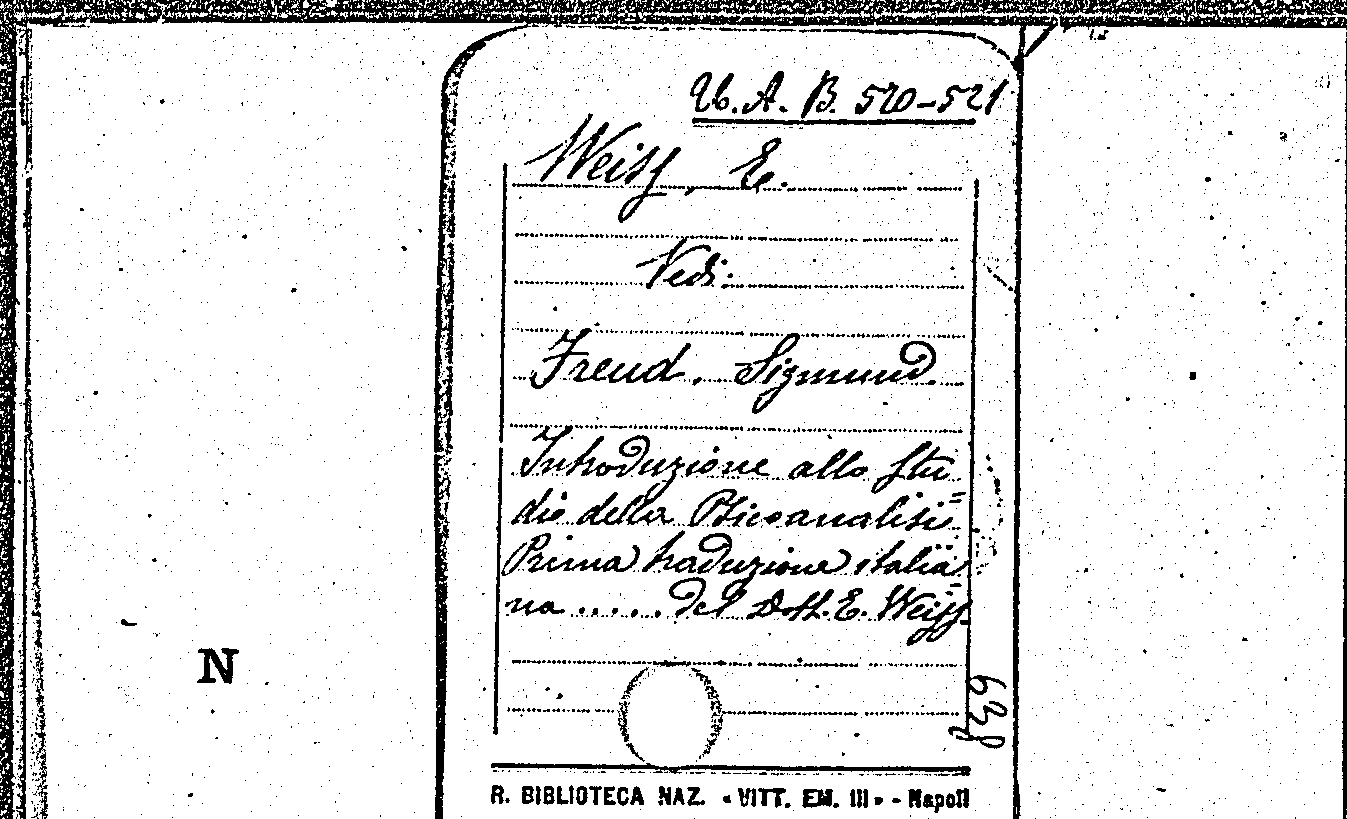 U. A. B. 520-521
Weiss, E.
Vedi:
Freud, Sigmund.
Introduzione allo stu=
dio della Psicoanalisi
Prima traduzione italia=
na ..... del Dott. E. Weiss.
N
R. BIBLIOTECA NAZ. « VITT. EM. III » - Napoli